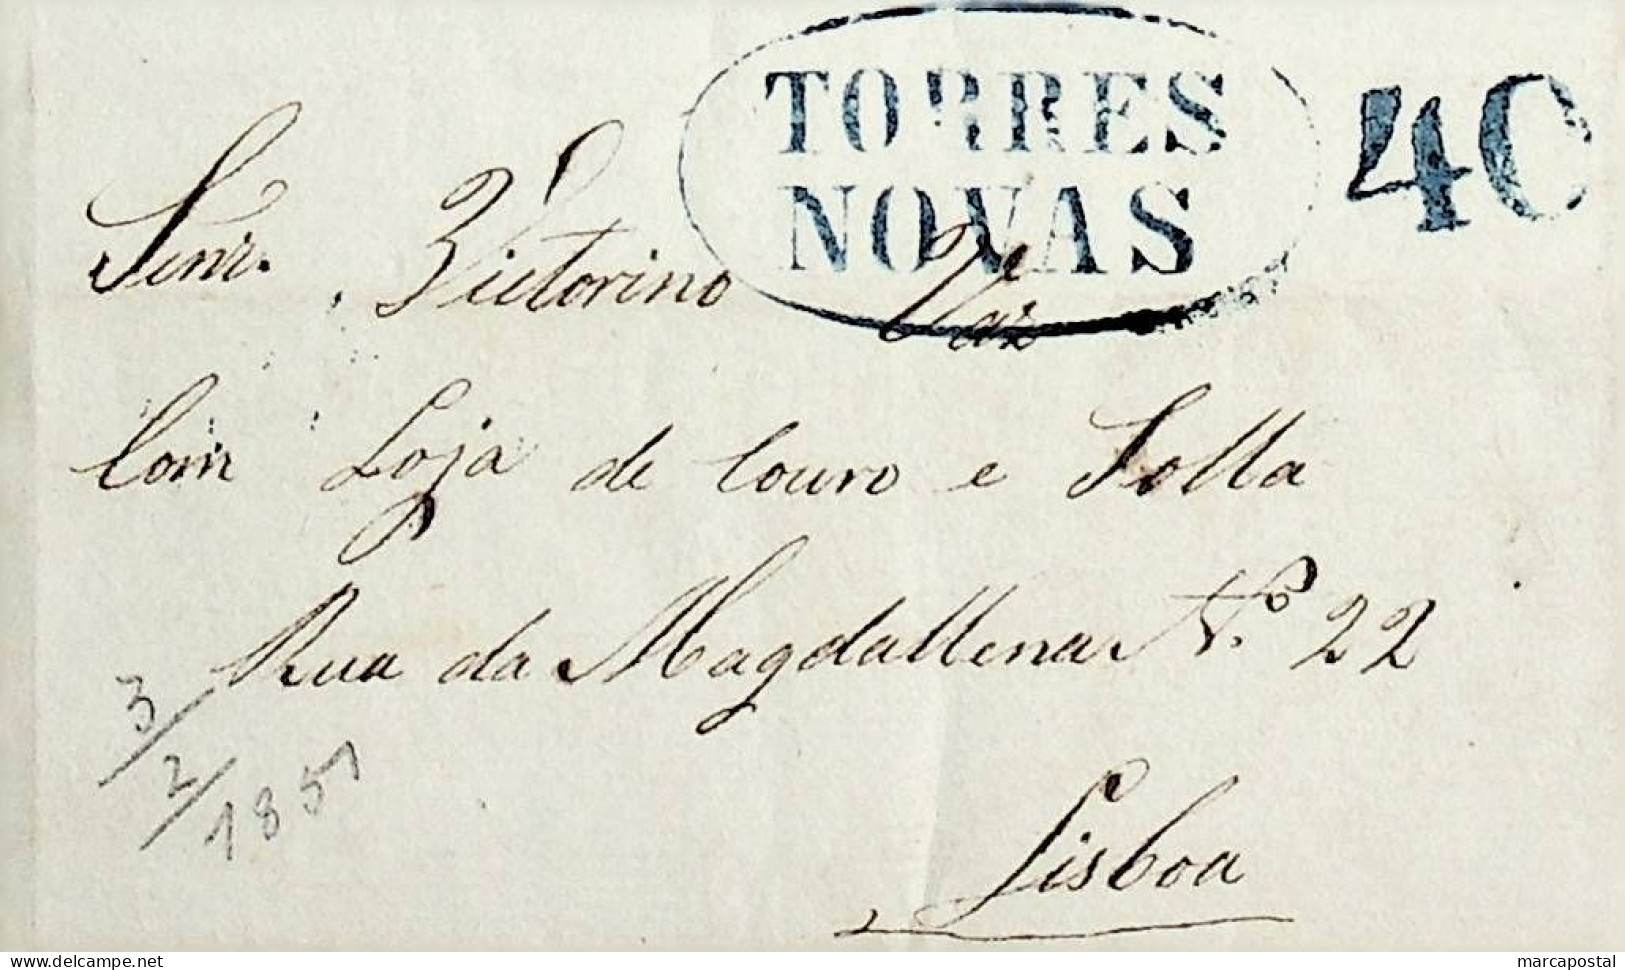 TORRES
NOVAS
40
Senr. Victorino Vaz
Com Loja de Couro e Solla
Rua da Magdallena Nº 22
Lisboa
3/2/1851
www.delcampe.net
marcapostal